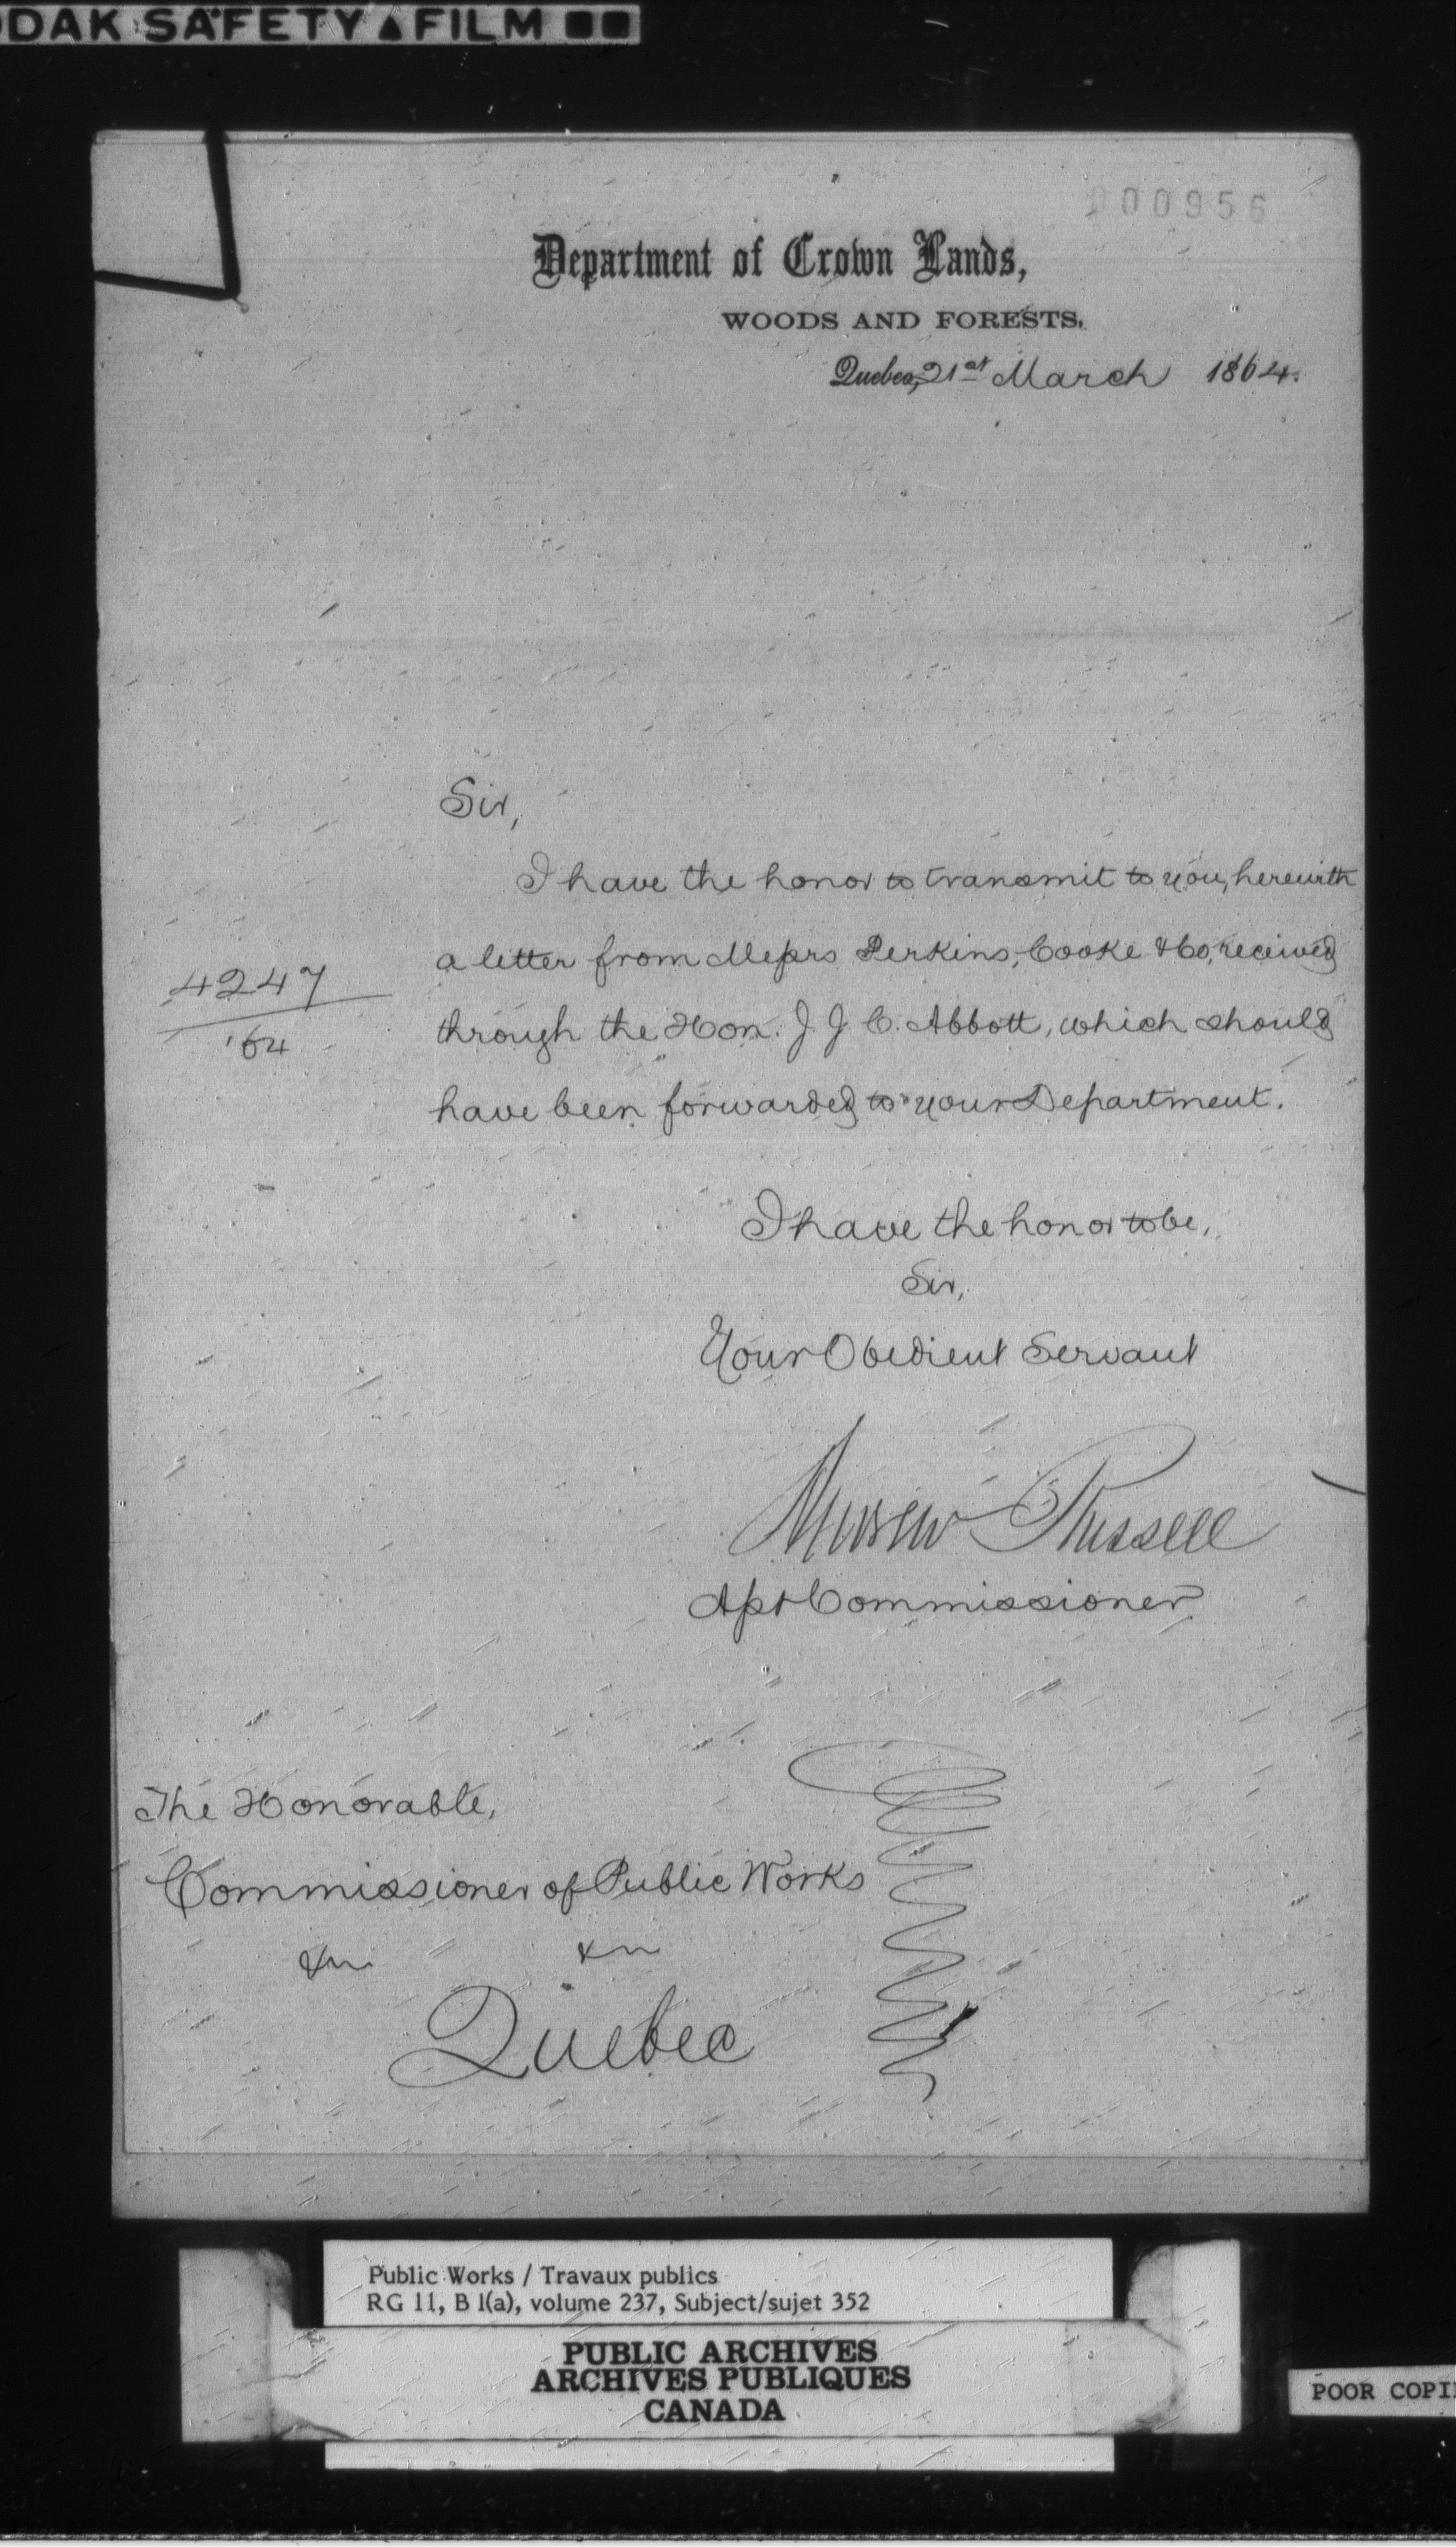 DAK SAFETY FILM
000956
Department of Crown Lands,
WOODS AND FORESTS.
Quebec, 21st March 1864.
Sir,
I have the honor to transmit to you, herewith
a letter from Messrs Perkins, Cooke & Co, received
4247
'64
through the Hon. J. J. C. Abbott, which should
have been forwarded to your Department.
I have the honor to be,
Sir,
Your Obedient Servant
Andrew Russell
Asst Commissioner
The Honorable,
Commissioner of Public Works
&c &c
Quebec
Public Works / Travaux publics
RG 11, B 1(a), volume 237, Subject/sujet 352
PUBLIC ARCHIVES
ARCHIVES PUBLIQUES
CANADA
POOR COPI